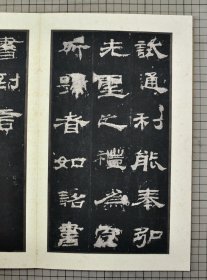 試通利能奉弘
先聖之禮為宗
所歸者如詔書
書對言